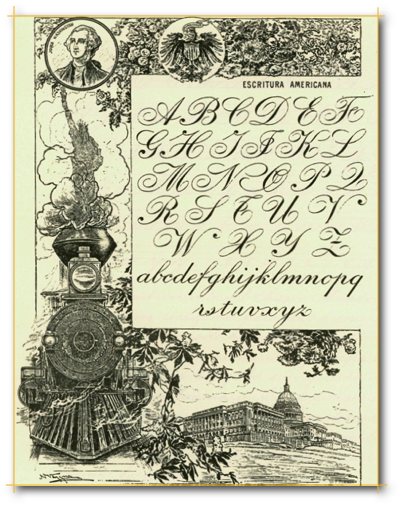 ESCRITURA AMERICANA
A B C D E F
G H I J K L
M N O P Q
R S T U V
W X Y Z
abcdefghijklmnopq
rstuvxyz